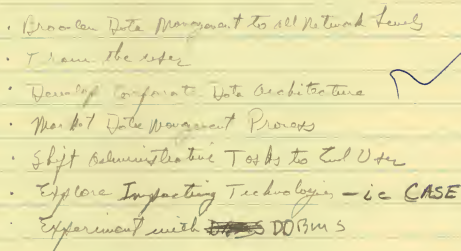 · Broaden Data Management to all Network Levels
· Train the user
· Develop Corporate Data Architecture
· Market Data Management Process
· Shift Administrative Tasks to End User
· Explore Impacting Technologies - ie CASE
· Experiment with DDBMS